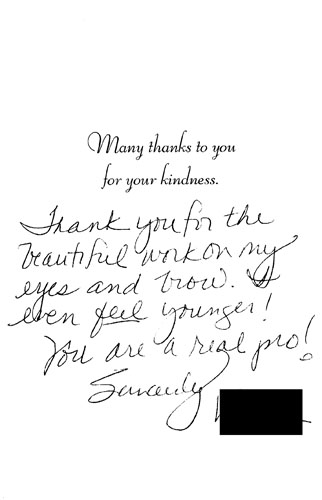 Many thanks to you
for your kindness.
Thank you for the
beautiful work on my
eyes and brow. I
even feel younger!
You are a real pro!
Sincerely